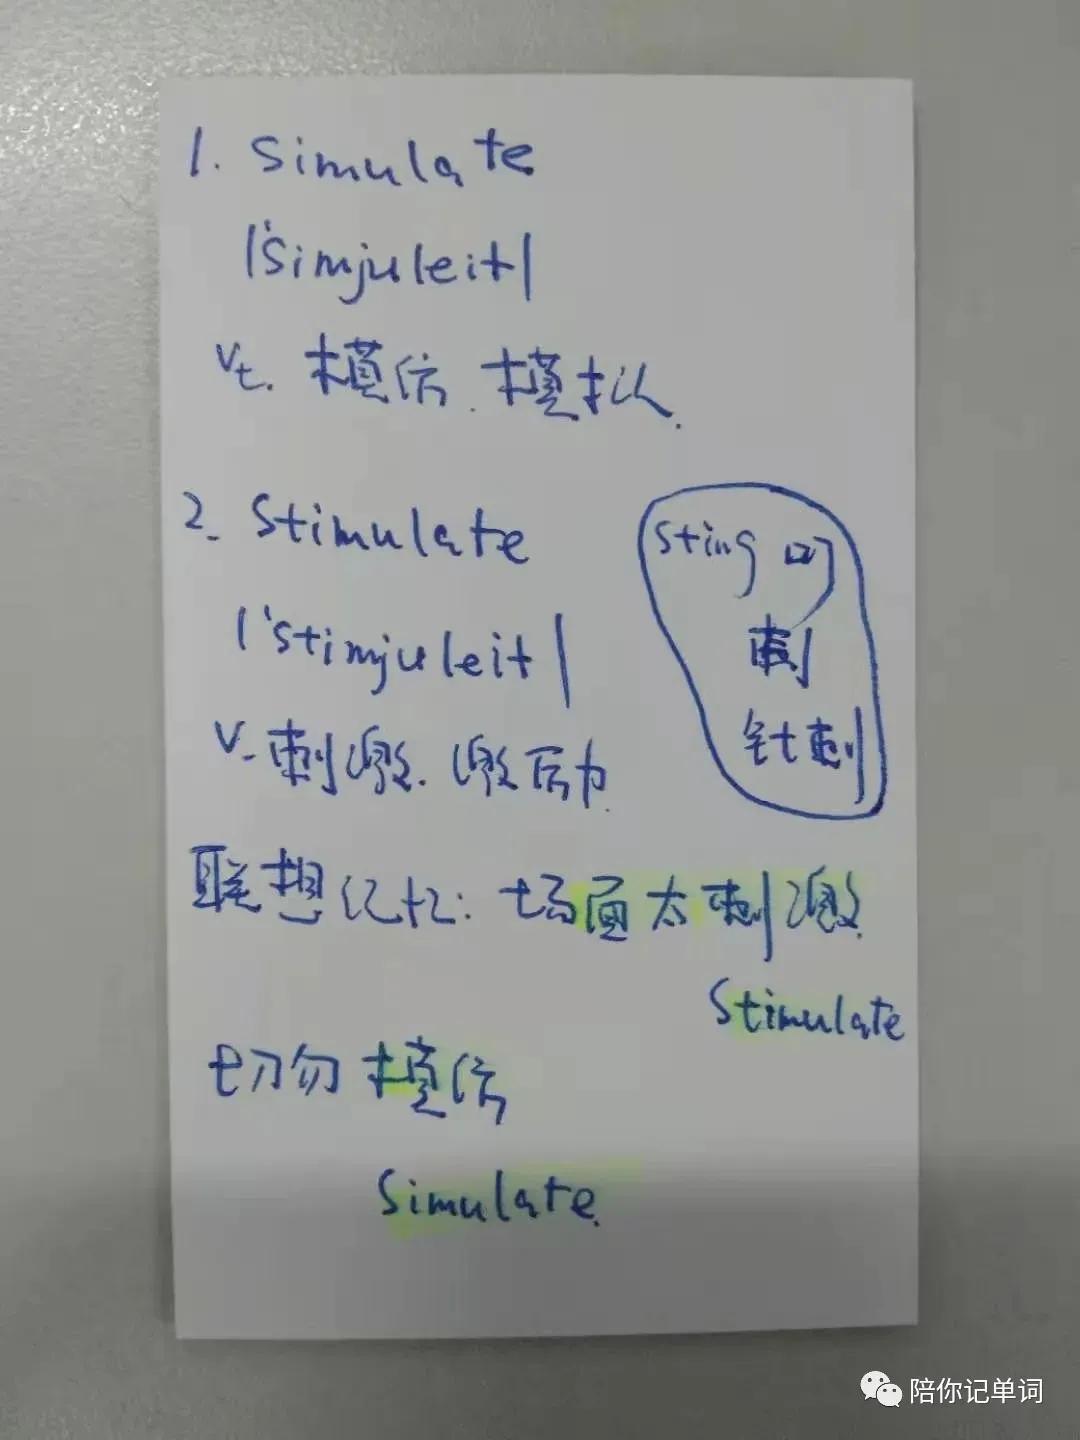 1. Simulate
|'simjuleit|
vt. 模仿. 模拟.
2. Stimulate
|'stimjuleit|
v. 刺激. 激励.
sting 叮
刺
针刺
联想记忆: 场面太刺激.
Stimulate
切勿模仿
Simulate.
陪你记单词